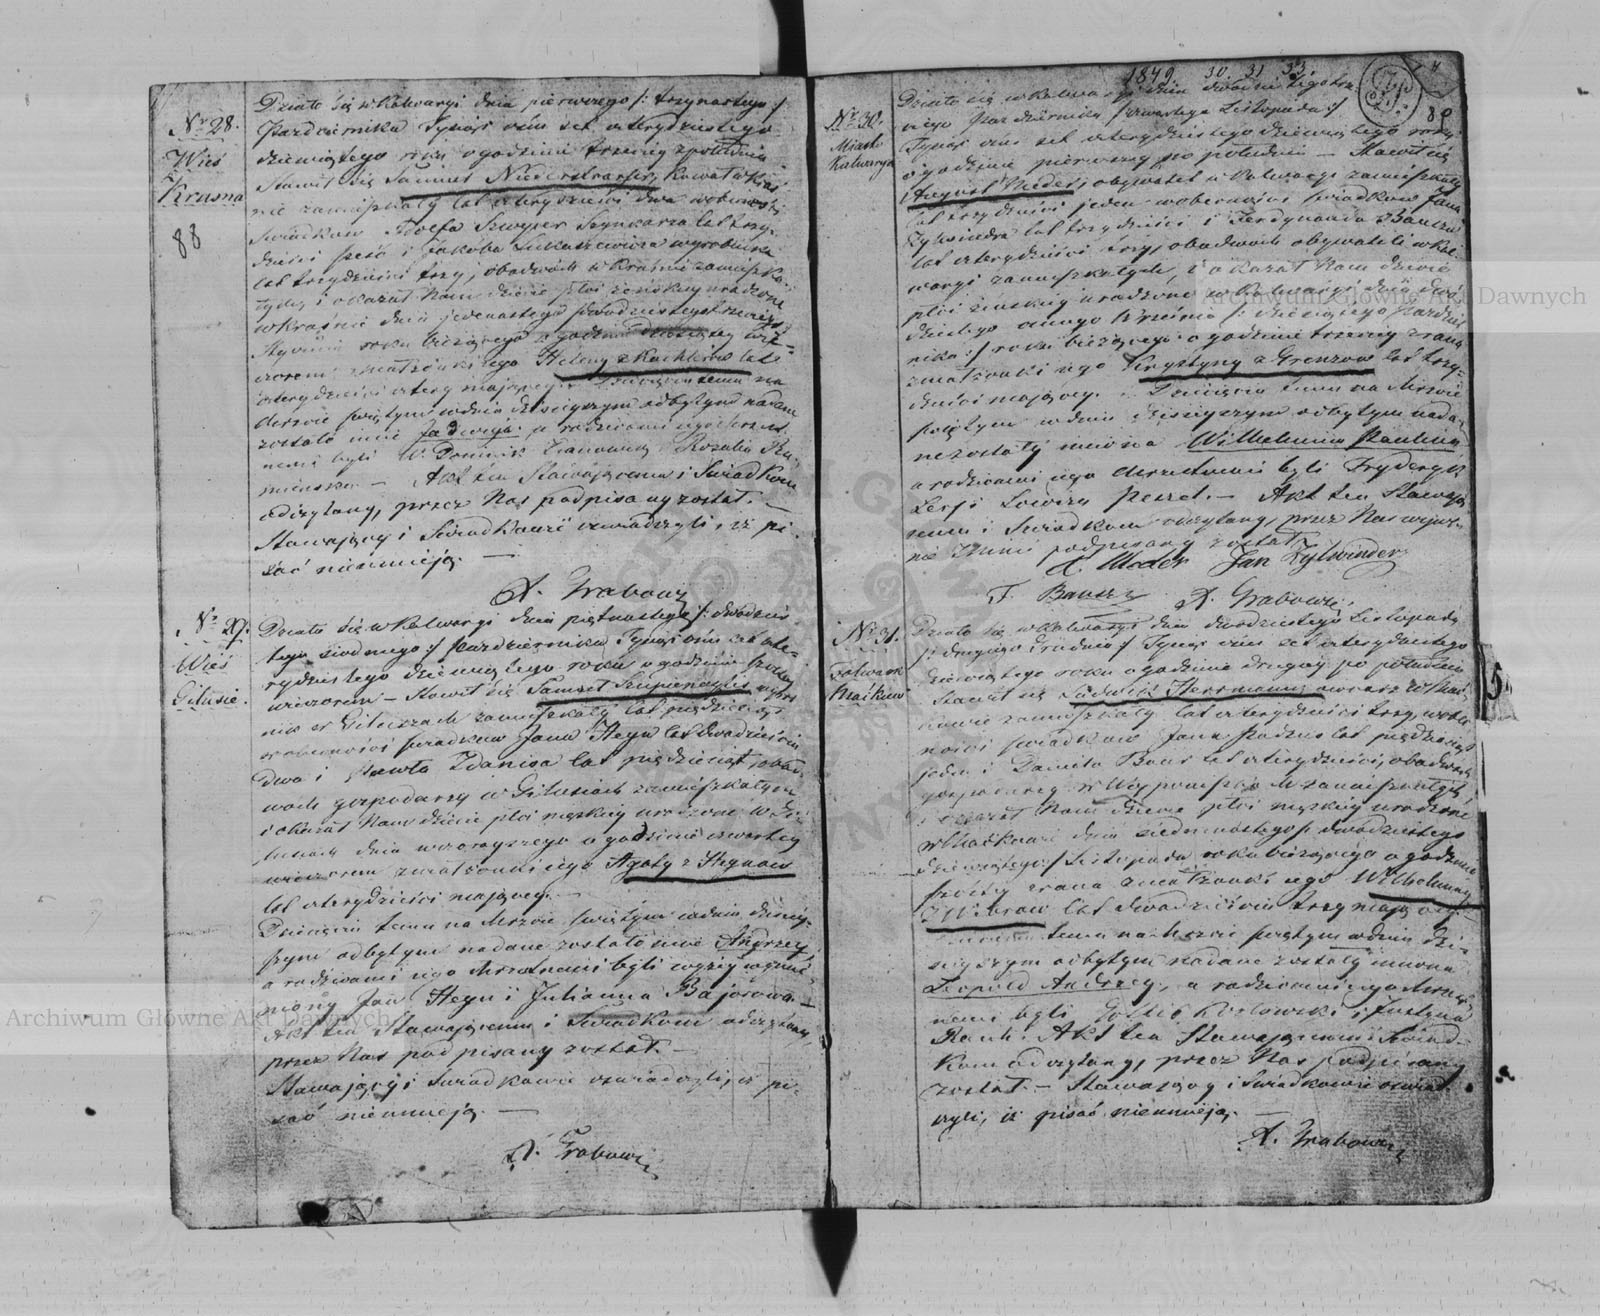 Nr 28.
Wieś
Krusna
88
Działo się w Kalwaryi dnia pierwszego /: trzynastego :/
Października Tysiąc ośm set czterydziestego
dziewiątego roku o godzinie trzeciey z południa
Stawił się Samuel Kowal w Kraś
nie zamieszkały lat czterydzieści dwa w obecności
Świadków Adolfa Szwyser Szynkarza lat trzy-
dzieści sześć i Jakóba Łukaszewicza wyrobnika
lat trzydzieści trzy, obadwóch w Kraśnie zamieszka-
łych, i okazał Nam dziecię płci żeńskiey urodzone
w Kraśnie dnia jedenastego /: dwudziestego trzeciego
roku bieżącego o godzinie wie-
czorem z małżonki jego Heleny z Kuchlerów lat
czterydzieści cztery mającey. Dziecięciu temu na
chrzcie świętym w dniu dzisieyszym odbytym nadane
zostało imie Jadwiga a rodzicami jego chrzest-
nemi byli W. Dominik i Rozalia
Akt ten Stawającemu i Świadkom
odczytany, przez Nas podpisany został. —
Stawający i Świadkowie oświadczyli, iż pi-
sać nieumieją. —
A. Grabowski
Nr 29.
Wieś
Gilusie.
Działo się w Kalwaryi dnia piętnastego /: dwudzies
tego siódmego :/ Października Tysiąc ośm set czte-
rydziestego dziewiątego roku o godzinie szóstey
wieczorem — Stawił się Samuel
w Giluszach zamieszkały lat pięćdziesiąt
w obecności świadków Jana Heyn lat dwadzieścia
dwa i Pawła Zdanisa lat pięćdziesiąt, obad-
wóch gospodarzy w Gilusiach zamieszkałych
i okazał Nam dziecie płci męzkiey urodzone w Gi-
lusiach dnia wczorayszego o godzinie czwartey
wieczorem z małżonki jego Agaty z Heynów
lat czterydzieści mającey. —
Dziecięciu temu na Chrzcie świętym w dniu dzisiey-
szym odbytym nadane zostało imie Andrzey,
a rodzicami jego chrzestnemi byli wyżey wspom-
niony Jan Heyn i Julianna Bajorowa. —
Akt ten Stawającemu i Świadkom odczytany
przez Nas podpisany został. —
Stawający i Świadkowie oświadczyli, iż pi-
sać nieumieją. —
A. Grabowski
1849. 30. 31 33
89
Nr 30.
Miasto
Kalwarya
Działo się w Kalwaryi dnia dwudziestego trze-
ciego Października /: czwartego Listopada :/
Tysiąc ośm set czterydziestego dziewiątego roku
o godzinie pierwszey po południu — Stawił się
August Meder, obywatel w Kalwaryi zamieszkały
lat trzydzieści jeden w obecności świadków Jana
Zylwindra lat trzydzieści i Ferdynanda Bausza
lat czterydzieści trzy, obadwóch obywateli w Kal-
waryi zamieszkałych, i okazał Nam dziecie
płci żeńskiey urodzone w Kalwaryi dnia dwu-
dziestego ósmego Września /: dziesiątego Paździer
nika :/ roku bieżącego o godzinie trzeciey z rana
z małżonki jego Krystyny z Grenzów lat trzy-
dzieści mającey. Dziecięciu temu na Chrzcie
świętym w dniu dzisieyszym odbytym nada-
ne zostały imiona Wilhelmina Paulina
a rodzicami jego chrzestnemi byli Fryderyk
i Lowiza — Akt ten Stawają
cemu i Świadkom odczytany, przez Nas wspól-
nie z niemi podpisany został.
A. Meder Jan Zylwinder
F. Bausz A. Grabowski
Nr 31.
Folwark
Działo się w Kalwaryi dnia dwudziestego Listopada
/: drugiego Grudnia :/ Tysiąc ośm set czterydziestego
dziewiątego roku o godzinie drugiey po południu
Stawił się Ludwik Herrmann, owczarz w
zamieszkały lat czterydzieści trzy, w obec-
ności świadków Jana lat pięćdziesiąt
jeden i Daniela Baur lat czterydzieści, obadwóch
gospodarzy w zamieszkałych
i okazał Nam dziecie płci męzkiey urodzone
w dnia siedemnastego /: dwudziestego
dziewiątego :/ Listopada roku bieżącego o godzinie
szóstey z rana z małżonki jego Wilhelminy
z Webrów lat dwadzieścia trzy mającey.
Dziecięciu temu na chrzcie świętym w dniu dzi-
sieyszym odbytym nadane zostały imiona
Leopold Andrzey, a rodzicami jego chrzest-
nemi byli Gotlib Kozłowski i Justyna
Rauh. Akt ten Stawającemu i Świad-
kom odczytany, przez Nas podpisany
został. — Stawający i Świadkowie oświad-
czyli, iż pisać nieumieją. —
A. Grabowski
Archiwum Główne Akt Dawnych
Archiwum Główne Akt Dawnych